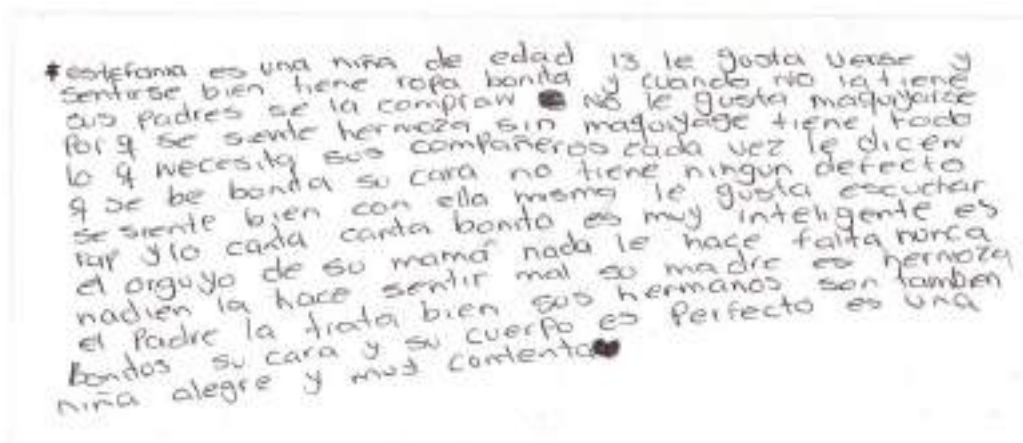 * estefania es una niña de edad 13 le gusta verse y
sentirse bien tiene ropa bonita y cuando no la tiene
sus padres se la compran No le gusta maquiyarze
por q se siente hermoza sin maquiyage tiene todo
lo q necesita sus compañeros cada vez le dicen
q se be bonita su cara no tiene ningun defecto
se siente bien con ella misma le gusta escuchar
rap y lo canta canta bonito es muy inteligente es
el orguyo de su mamá nada le hace falta nunca
nadien la hace sentir mal su madre es hermoza
el Padre la trata bien sus hermanos son tambien
bonitos su cara y su cuerpo es Perfecto es una
niña alegre y muy contenta